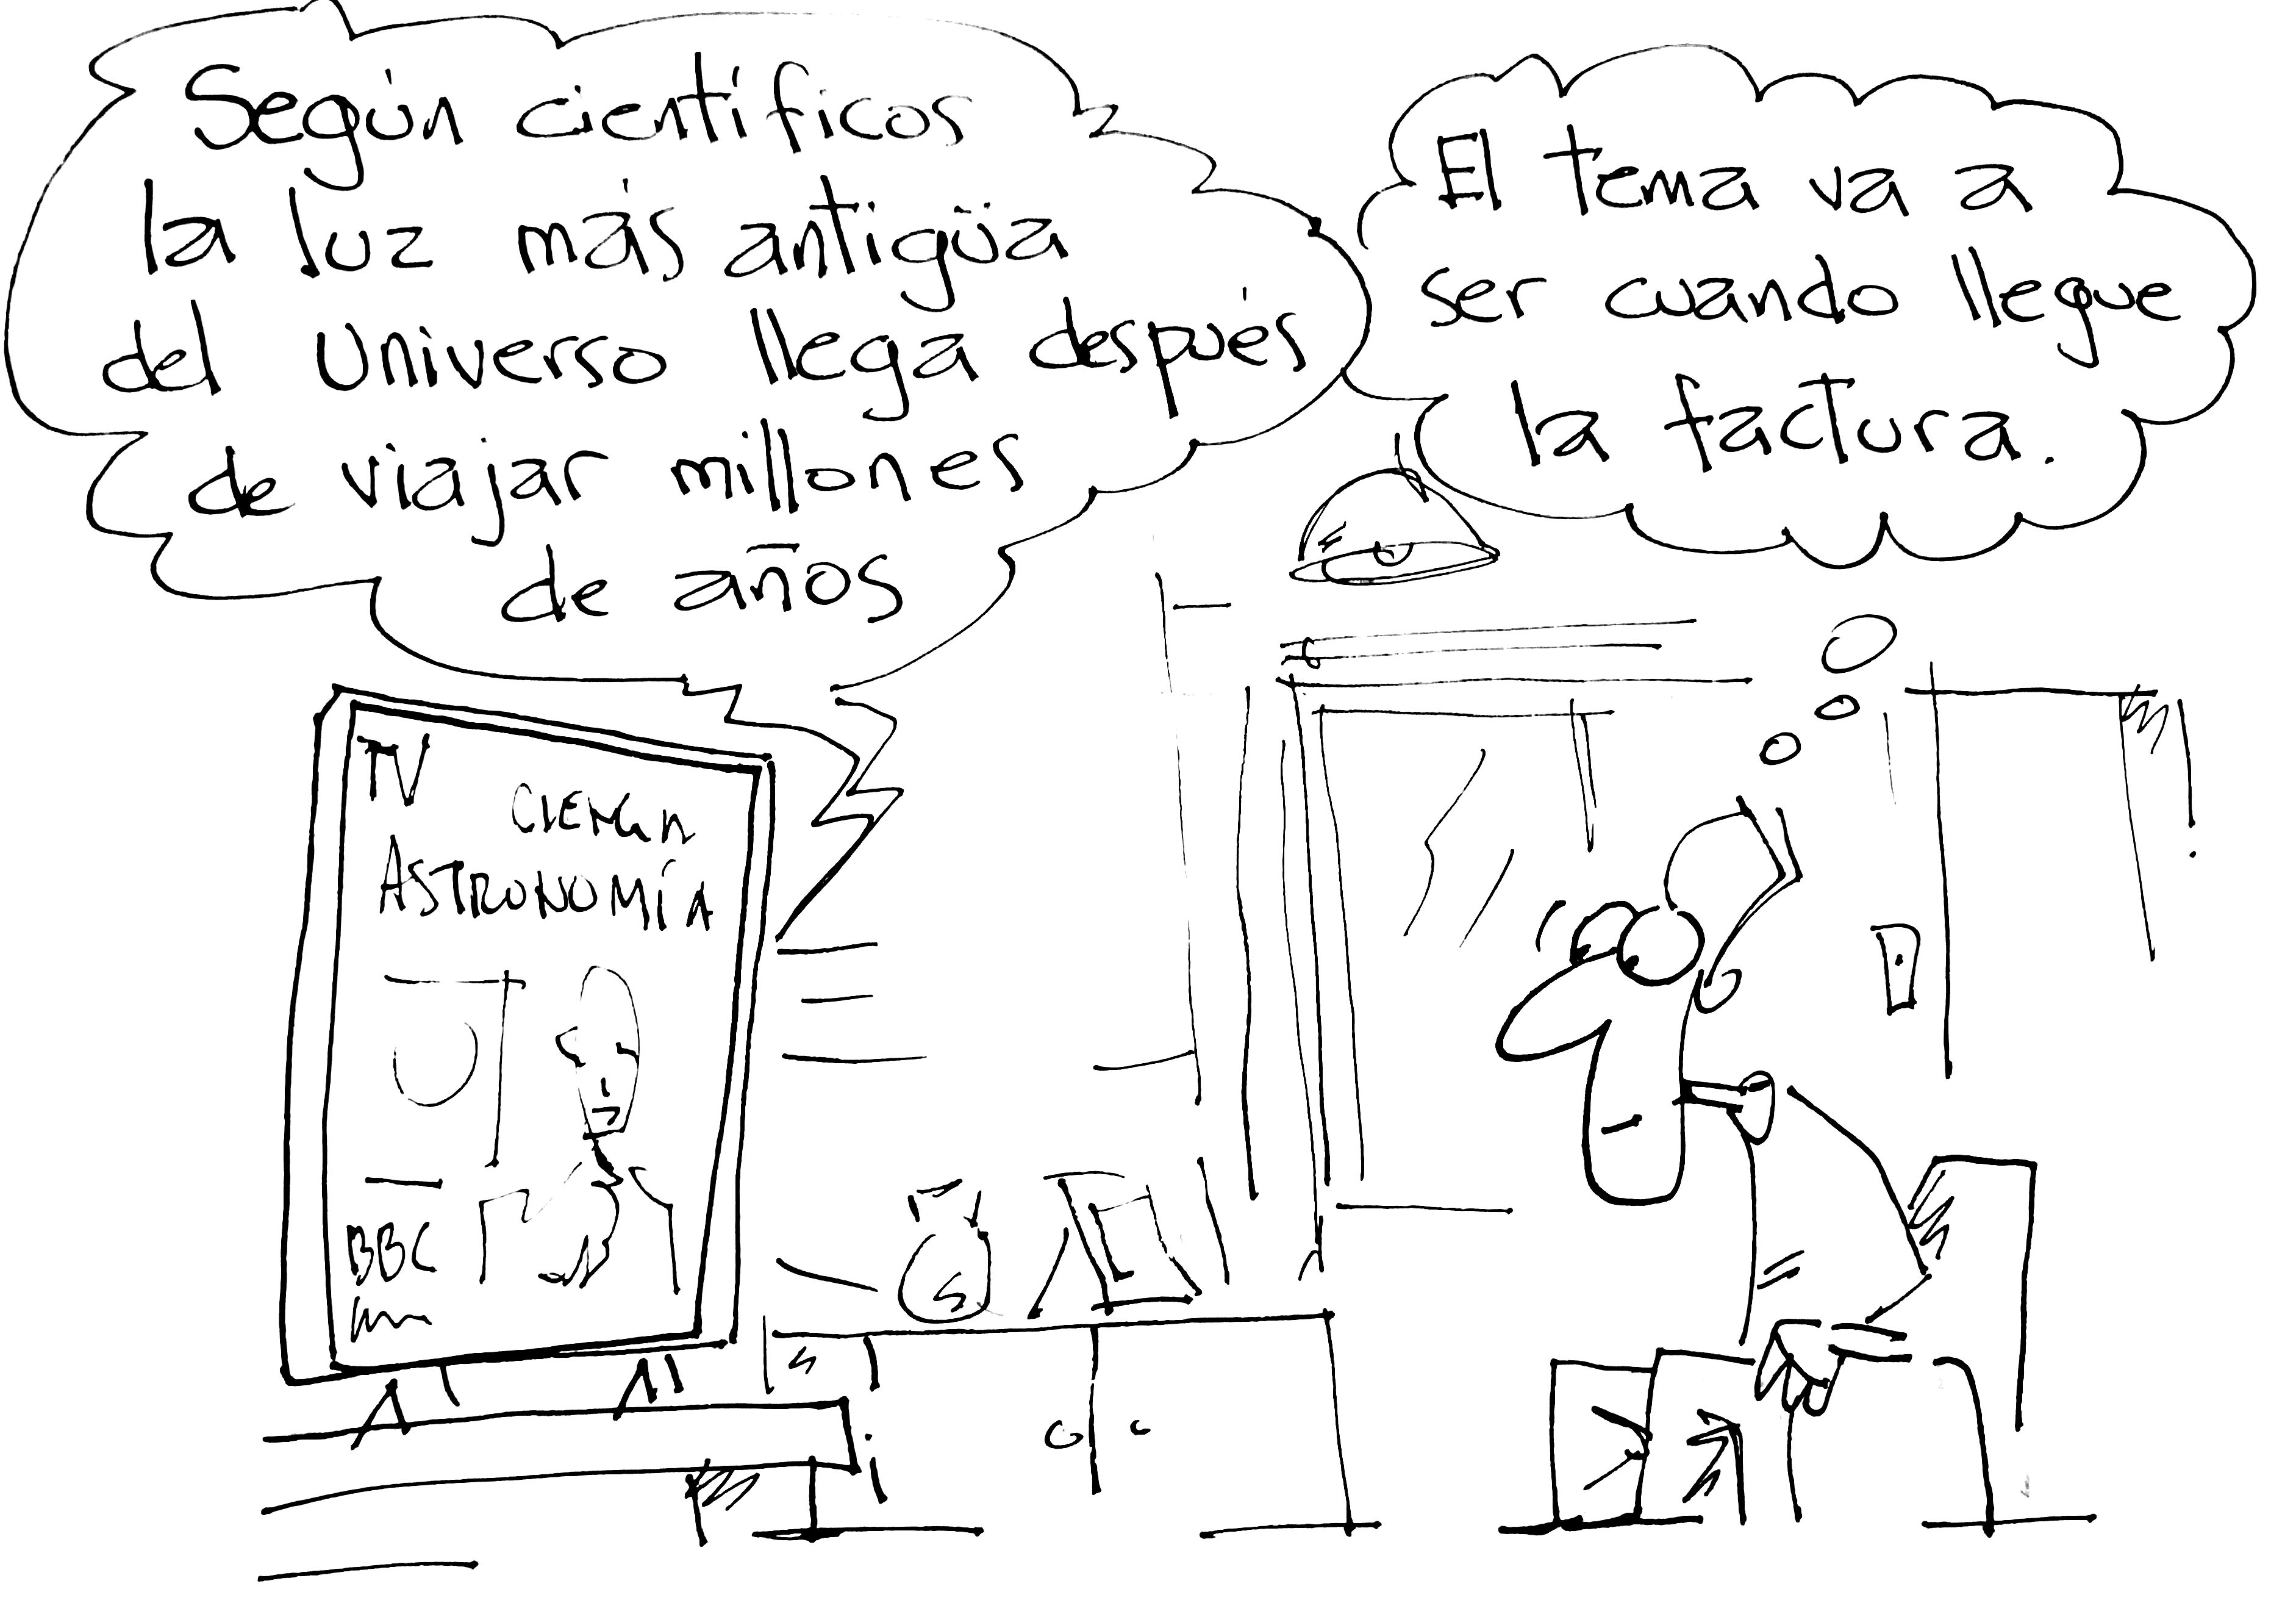 Según científicos
la luz más antigüa
del Universo llega después
de viajar millones
de años
El tema va a
ser cuando llegue
la factura.
TV
CIENCIA
ASTRONOMÍA
BBC